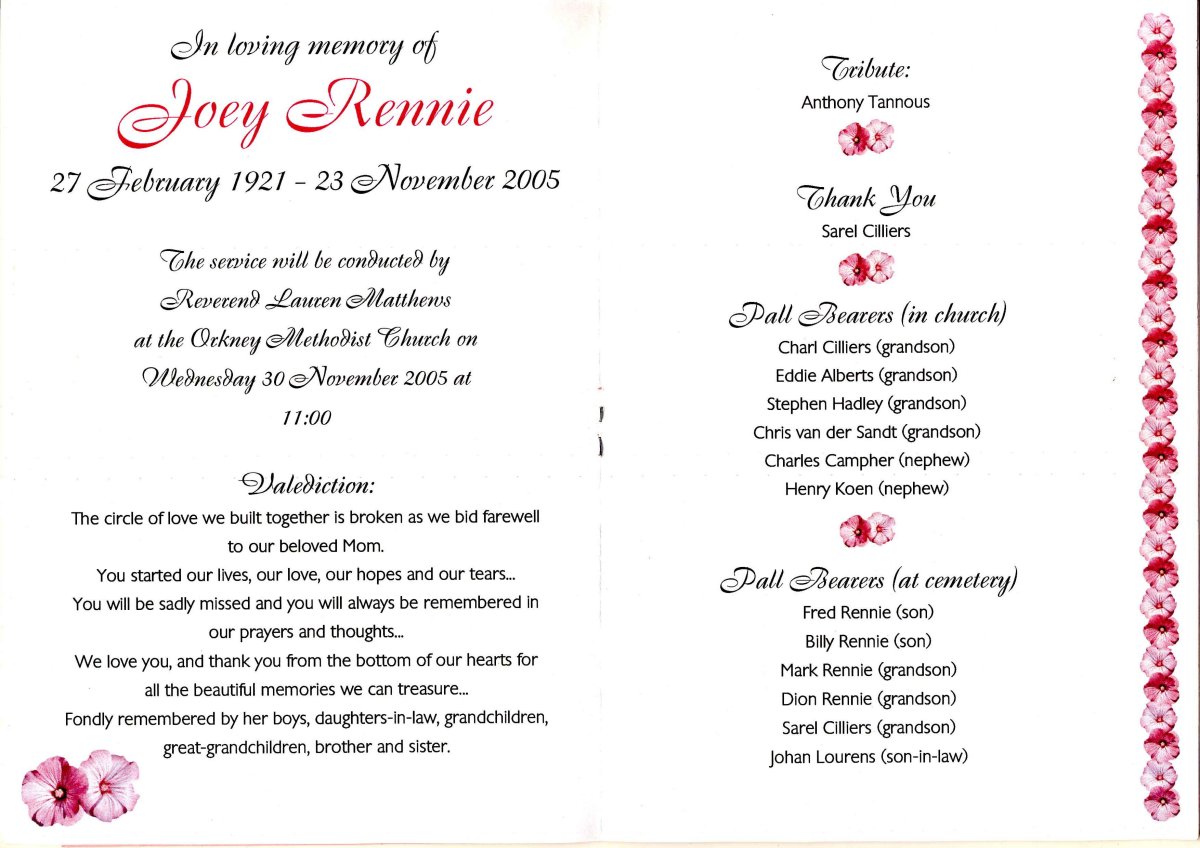 In loving memory of
Joey Rennie
27 February 1921 - 23 November 2005
The service will be conducted by
Reverend Lauren Matthews
at the Orkney Methodist Church on
Wednesday 30 November 2005 at
11:00
Valediction:
The circle of love we built together is broken as we bid farewell
to our beloved Mom.
You started our lives, our love, our hopes and our tears...
You will be sadly missed and you will always be remembered in
our prayers and thoughts...
We love you, and thank you from the bottom of our hearts for
all the beautiful memories we can treasure...
Fondly remembered by her boys, daughters-in-law, grandchildren,
great-grandchildren, brother and sister.
Tribute:
Anthony Tannous
Thank You
Sarel Cilliers
Pall Bearers (in church)
Charl Cilliers (grandson)
Eddie Alberts (grandson)
Stephen Hadley (grandson)
Chris van der Sandt (grandson)
Charles Campher (nephew)
Henry Koen (nephew)
Pall Bearers (at cemetery)
Fred Rennie (son)
Billy Rennie (son)
Mark Rennie (grandson)
Dion Rennie (grandson)
Sarel Cilliers (grandson)
Johan Lourens (son-in-law)